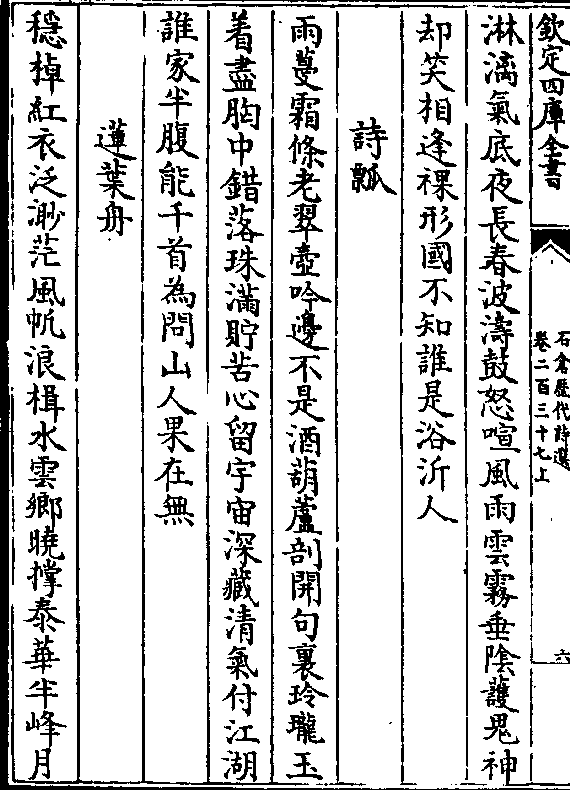 欽定四庫全書
石倉歷代詩選
卷二百三十七上
六
淋漓氣底夜長春波濤鼓怒喧風雨雲霧垂陰䕶鬼神
却笑相逢裸形國不知誰是浴沂人
詩瓢
雨蔓霜條老翠壺吟邊不是酒葫蘆剖開句裏玲瓏玉
着盡胸中錯落珠滿貯苦心留宇宙深藏清氣付江湖
誰家半腹能千首為問山人果在無
蓮葉舟
穏棹紅衣泛渺茫風帆浪楫水雲鄉曉撑泰華半峰月